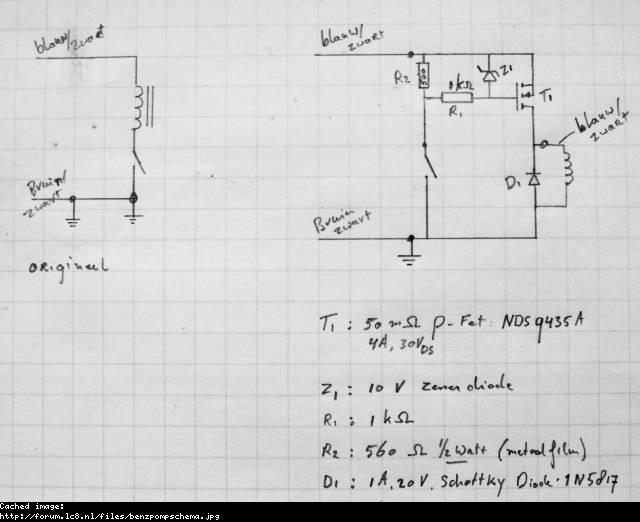 blauw/
zwart
Bruin/
zwart
origineel
blauw/
zwart
R2
560
1kΩ
R1
Z1
T1
blauw/
zwart
D1
Bruin
zwart
T1 : 50 mΩ P-Fet: NDS9435A
4A, 30VDS
Z1 : 10 V zener diode
R1 : 1 kΩ
R2 : 560 Ω 1/2 Watt (metaalfilm)
D1 : 1A, 20V, Schottky Diode. 1N5817
Cached image:
http://forum.lc8.nl/files/benzpompschema.jpg